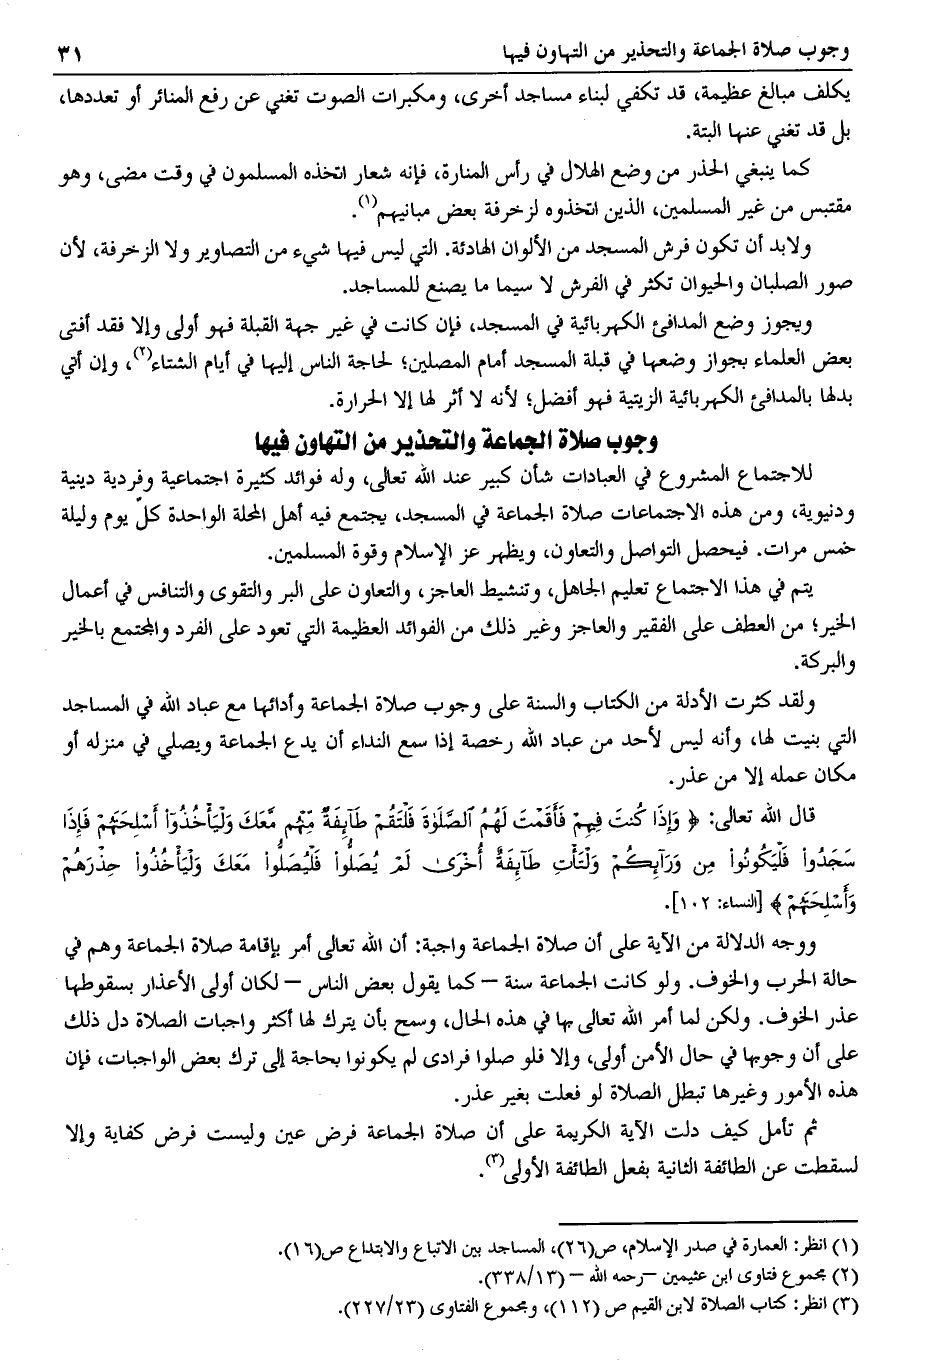 وجوب صلاة الجماعة والتحذير من التهاون فيها ٣١
يكلف مبالغ عظيمة، قد تكفي لبناء مساجد أخرى، ومكبرات الصوت تغني عن رفع المنائر أو تعددها،
بل قد تغني عنها البتة.
كما ينبغي الحذر من وضع الهلال في رأس المنارة، فإنه شعار اتخذه المسلمون في وقت مضى، وهو
مقتبس من غير المسلمين، الذين اتخذوه لزخرفة بعض مبانيهم(١).
ولابد أن تكون فرش المسجد من الألوان الهادئة. التي ليس فيها شيء من التصاوير ولا الزخرفة، لأن
صور الصلبان والحيوان تكثر في الفرش لا سيما ما يصنع للمساجد.
ويجوز وضع المدافئ الكهربائية في المسجد، فإن كانت في غير جهة القبلة فهو أولى وإلا فقد أفتى
بعض العلماء بجواز وضعها في قبلة المسجد أمام المصلين؛ لحاجة الناس إليها في أيام الشتاء(٢)، وإن أتي
بدلها بالمدافئ الكهربائية الزيتية فهو أفضل؛ لأنه لا أثر لها إلا الحرارة.
وجوب صلاة الجماعة والتحذير من التهاون فيها
للاجتماع المشروع في العبادات شأن كبير عند الله تعالى، وله فوائد كثيرة اجتماعية وفردية دينية
ودنيوية، ومن هذه الاجتماعات صلاة الجماعة في المسجد، يجتمع فيه أهل المحلة الواحدة كلّ يوم وليلة
خمس مرات. فيحصل التواصل والتعاون، ويظهر عز الإسلام وقوة المسلمين.
يتم في هذا الاجتماع تعليم الجاهل، وتنشيط العاجز، والتعاون على البر والتقوى والتنافس في أعمال
الخير؛ من العطف على الفقير والعاجز وغير ذلك من الفوائد العظيمة التي تعود على الفرد والمجتمع بالخير
والبركة.
ولقد كثرت الأدلة من الكتاب والسنة على وجوب صلاة الجماعة وأدائها مع عباد الله في المساجد
التي بنيت لها، وأنه ليس لأحد من عباد الله رخصة إذا سمع النداء أن يدع الجماعة ويصلي في منزله أو
مكان عمله إلا من عذر.
قال الله تعالى: ﴿ وَإِذَا كُنتَ فِيهِمْ فَأَقَمْتَ لَهُمُ ٱلصَّلَوٰةَ فَلْتَقُمْ طَآئِفَةٌ مِّنْهُم مَّعَكَ وَلْيَأْخُذُوٓا۟ أَسْلِحَتَهُمْ فَإِذَا
سَجَدُوا۟ فَلْيَكُونُوا۟ مِن وَرَآئِكُمْ وَلْتَأْتِ طَآئِفَةٌ أُخْرَىٰ لَمْ يُصَلُّوا۟ فَلْيُصَلُّوا۟ مَعَكَ وَلْيَأْخُذُوا۟ حِذْرَهُمْ
وَأَسْلِحَتَهُمْ ﴾ [النساء: ١٠٢].
ووجه الدلالة من الآية على أن صلاة الجماعة واجبة: أن الله تعالى أمر بإقامة صلاة الجماعة وهم في
حالة الحرب والخوف. ولو كانت الجماعة سنة – كما يقول بعض الناس – لكان أولى الأعذار بسقوطها
عذر الخوف. ولكن لما أمر الله تعالى بها في هذه الحال، وسمح بأن يترك لها أكثر واجبات الصلاة دل ذلك
على أن وجوبها في حال الأمن أولى، وإلا فلو صلوا فرادى لم يكونوا بحاجة إلى ترك بعض الواجبات، فإن
هذه الأمور وغيرها تبطل الصلاة لو فعلت بغير عذر.
ثم تأمل كيف دلت الآية الكريمة على أن صلاة الجماعة فرض عين وليست فرض كفاية وإلا
لسقطت عن الطائفة الثانية بفعل الطائفة الأولى(٣).
(١) انظر: العمارة في صدر الإسلام، ص(٢٦)، المساجد بين الاتباع والابتداع ص(١٦).
(٢) مجموع فتاوى ابن عثيمين –رحمه الله – (٣٣٨/١٣).
(٣) انظر: كتاب الصلاة لابن القيم ص (١١٢)، ومجموع الفتاوى (٢٢٧/٢٣).